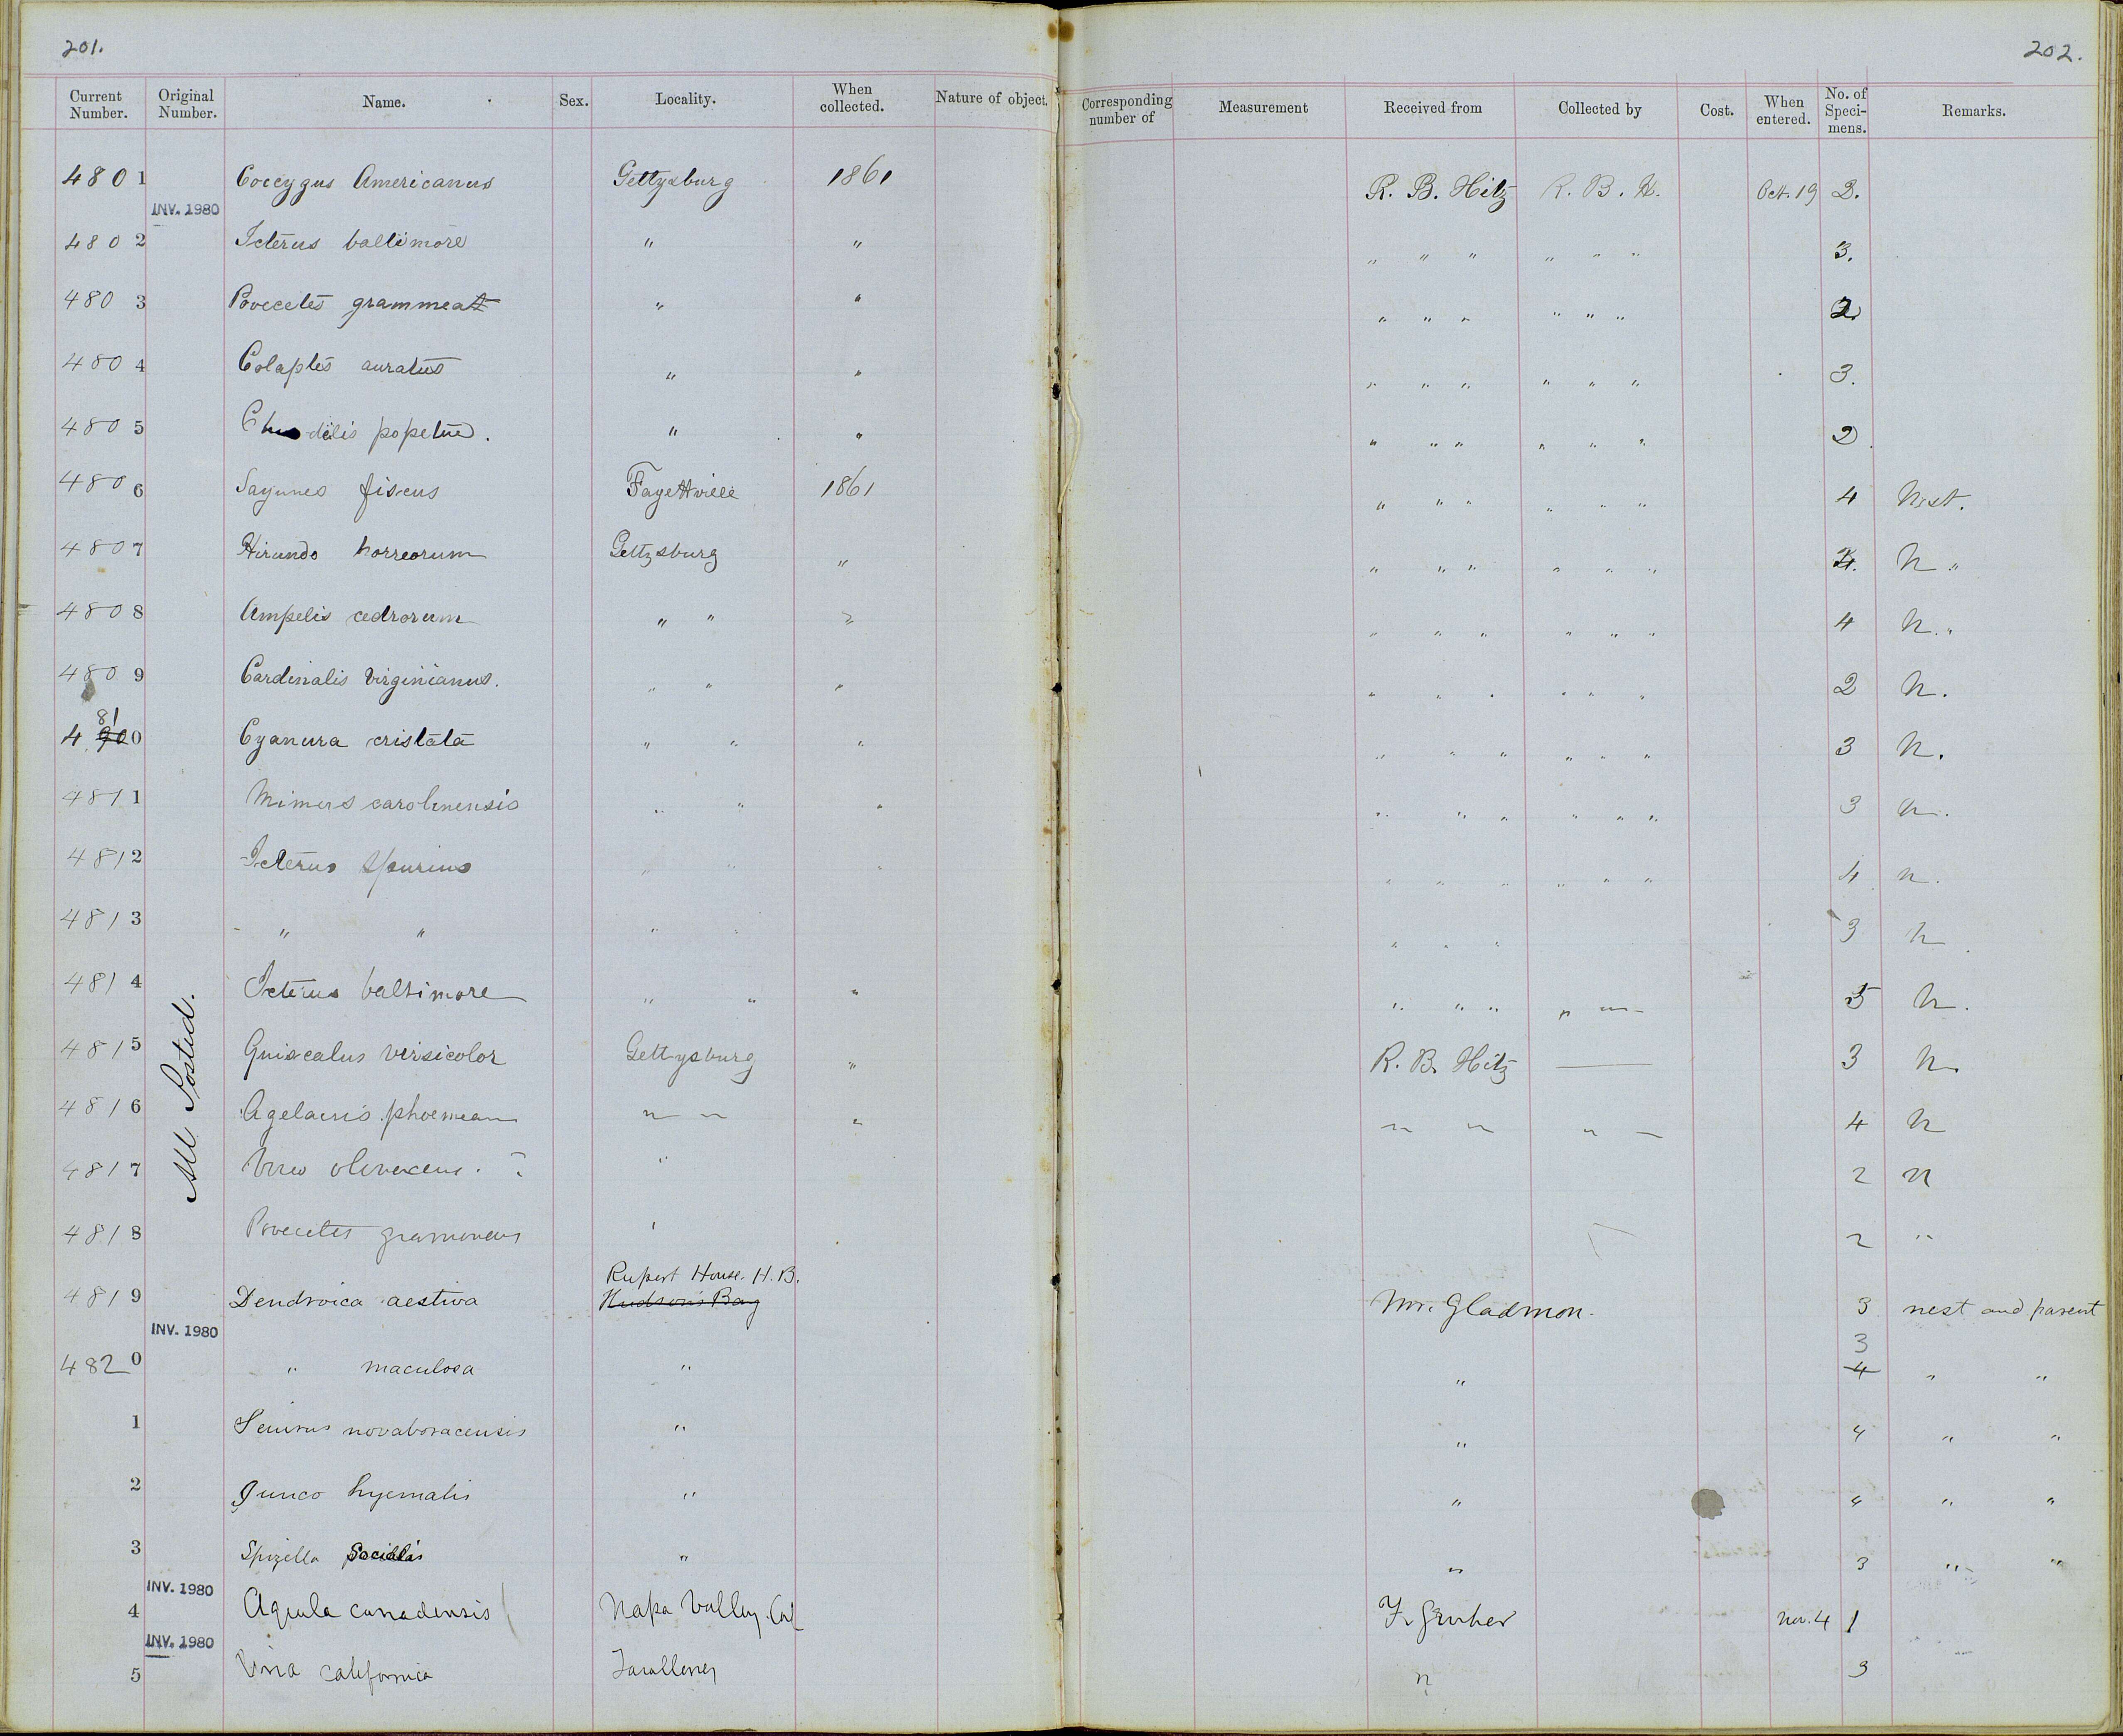 201.
202.
Current Number. Original Number. Name. Sex. Locality. When collected. Nature of object. Corresponding number of Measurement Received from Collected by Cost. When entered. No. of Speci-mens. Remarks.
4801 Coccygus Americanus Gettysburg 1861 R. B. Hitz R. B. H. Oct. 19 2.
INV. 1980
4802 Icterus baltimore " " " " " " " " 3.
4803 Poocetes " " " " " " " " 2.
4804 Colaptes auratus " " " " " " " " 3.
4805 popetue. " " " " " " " " 2
4806 Fayettville 1861 " " " " " " 4 Nest.
4807 Hirundo horreorum Gettysburg " " " " " " " 4. N "
4808 Ampelis cedrorum " " " " " " " " " 4 N. "
4809 Cardinalis Virginianus. " " " " " " " " " 2 N.
81
4 900 Cyanura cristata " " " " " " " " " 3 N.
4811 Mimus carolinensis " " " " " " " " " 3 n.
4812 Icterus spurius " " " " " " " " " 4 n.
4813 " " " " " " " 3 n
4814 Icterus baltimore " " " " " " " " 5 n.
4815 Quiscalus versicolor Gettysburg " R. B. Hitz — 3 n.
4816 " " " " " " 4 n
4817 Vireo ? " 2 n
4818 Poocetes 2 "
All Posted.
Rupert House. H. B.
4819 Dendroica aestiva Hudson's Bay Mr. Gladmon. 3 nest and parent
INV. 1980
3
4820 " maculosa " " 4 " "
1 Seiurus novaboracensis " " 4 " "
2 Junco hyemalis " " 4 " "
3 Spizella Socialis " " 3 " "
INV. 1980
4 Aquila canadensis Napa Valley. Cal F. Gruber Nov. 4 1
INV. 1980
5 Uria californica " 3